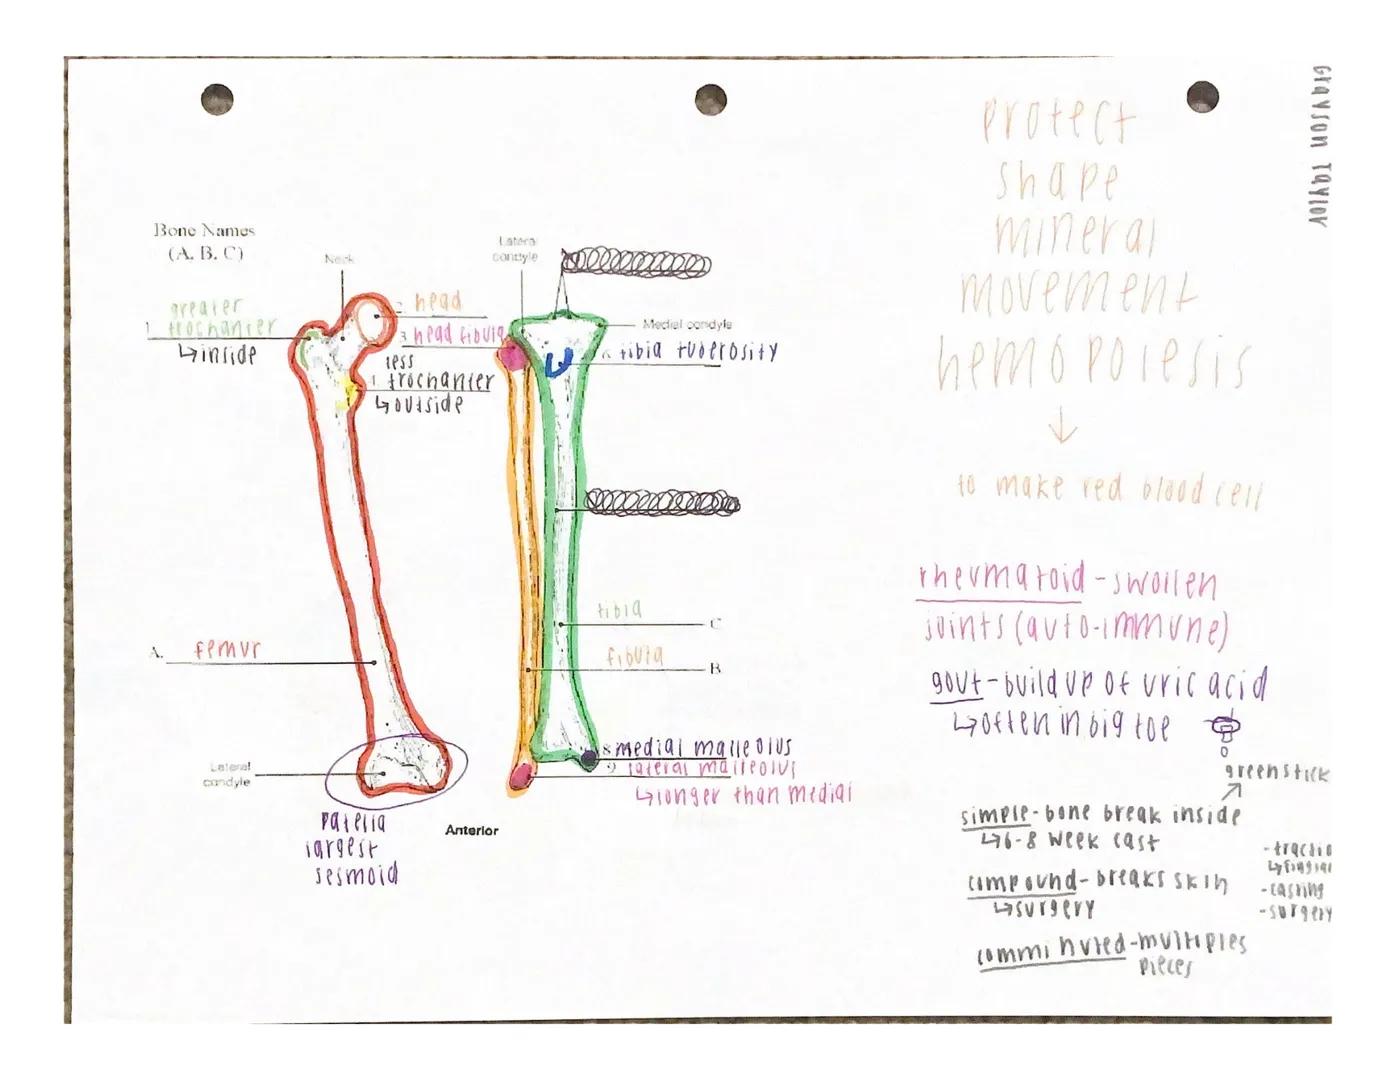 Grayson Taylor
protect
shape
mineral
movement
hemopoiesis
↓
to make red blood cell
Bone Names
(A. B. C)
Neck
Lateral
condyle
greater
1. trochanter
↳inside
2 head
3 head fibula
less
1 trochanter
↳outside
Medial condyle
tibia tuberosity
tibia
C
A. femur
fibula
B
Lateral
condyle
8 medial malleolus
9 lateral malleolus
↳longer than medial
patella
largest
sesmoid
Anterior
rhevmatoid-swollen
joints (auto-immune)
gout-build up of uric acid
↳often in big toe
greenstick
simple-bone break inside
↳6-8 week cast
compound-breaks skin
↳surgery
comminuted-multiples
pieces
-casting
-surgery